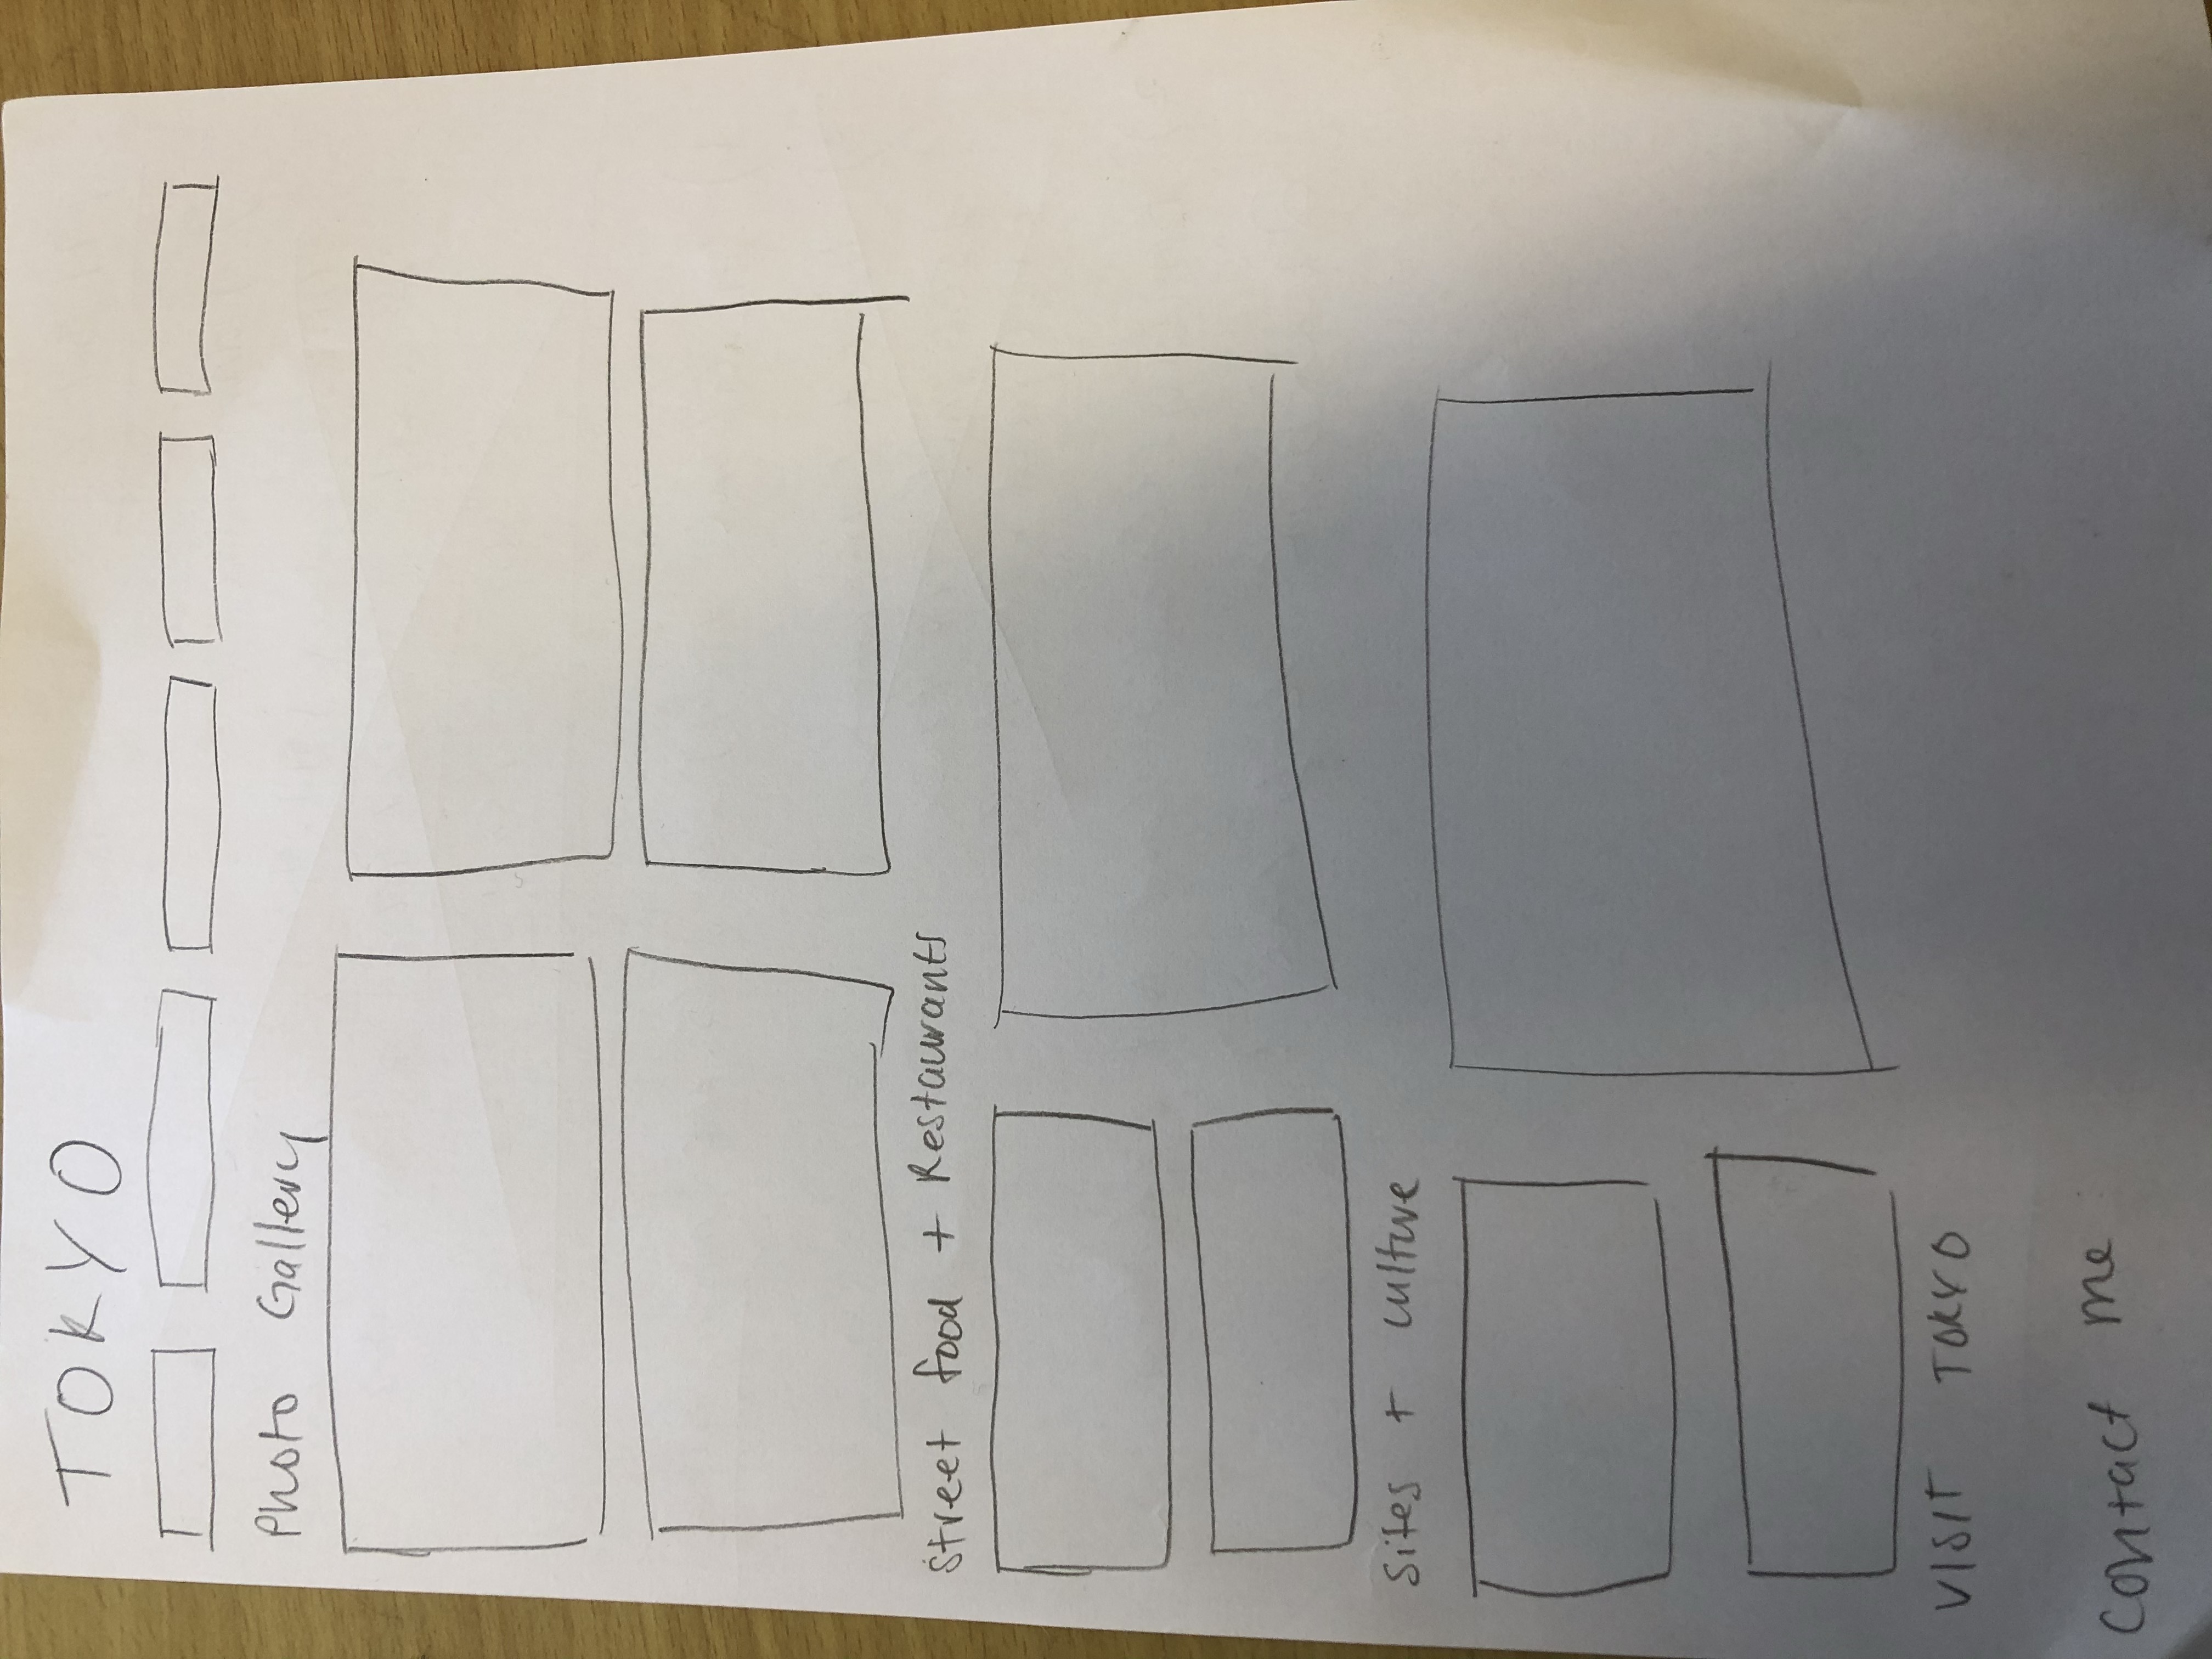 TOKYO
Photo Gallery
Street food + Restaurants
Sites + culture
VISIT TOKYO
Contact me